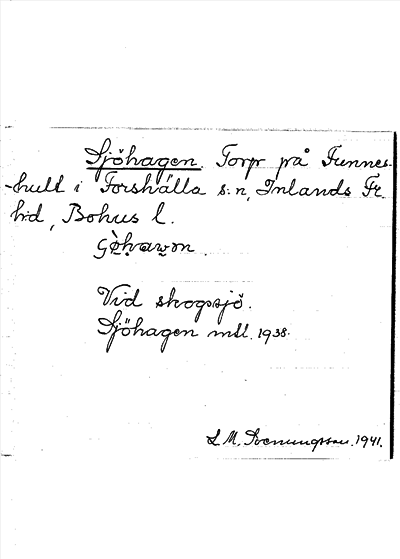 Sjöhagen. Torp på Funnes-
-hult i Forshälla s:n, Inlands Fr.
h:d, Bohus l.

Vid skogssjö.
Sjöhagen mtl. 1938.
L. M. Svenungsson. 1941.